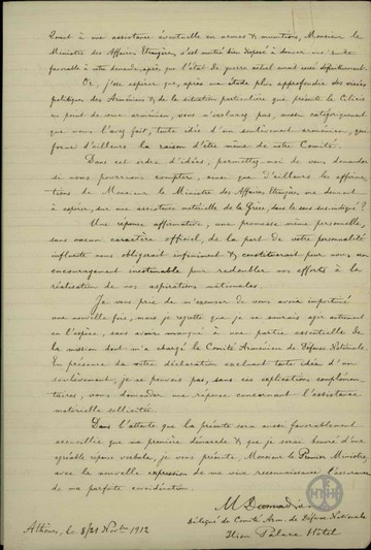 Quant à une assistance éventuelle en armes & munitions, Monsieur le
Ministre des Affaires Etrangères, s'est montré bien disposé à donner une suite
favorable à votre demande, après que l'état de guerre actuel aurait cessé définitivement.
Or, j'ose espérer que, après une étude plus approfondie des visées
politiques des Arméniens & de la situation particulière que présente la Cilicie
au point de vue arménien, vous n'exclurez pas, aussi catégoriquement
que vous l'avez fait, toute idée d'un soulèvement arménien, que
forme d'ailleurs la raison d'être même de notre Comité.
Dans cet ordre d'idées, permettez-moi de vous demander
si nous pourrions compter, ainsi que d'ailleurs les affirma-
tions de Monsieur le Ministre des Affaires Etrangères, me donnent
à espérer, sur une assistance matérielle de la Grèce, dans le sens sus-indiqué?
Une réponse affirmative, une promesse même personnelle,
sans aucun caractère officiel, de la part de votre personnalité
influente nous obligerait infiniment & constituerait pour nous, un
encouragement inestimable pour redoubler nos efforts à la
réalisation de nos aspirations nationales.
Je vous prie de m'excuser de vous avoir importuné
une nouvelle fois, mais je regrette que je ne saurais agir autrement
en l'espèce, sans avoir manqué à une partie essentielle de
la mission dont m'a chargé le Comité Arménien de Défense Nationale.
En présence de votre déclaration excluant toute idée d'un
soulèvement, je ne pouvais pas, sans ces explications complémen-
taires, vous demander une réponse concernant l'assistance
matérielle sollicitée.
Dans l'attente que la présente sera aussi favorablement
accueillie que ma première démarche & que je serai honoré d'une
agréable réponse verbale, je vous présente Monsieur le Premier Ministre,
avec la nouvelle expression de ma vive reconnaissance l'assurance
de ma parfaite considération.
Délégué du Comité Arm. de Défense Nationale
Athènes, le 8/21 Novbre 1912
Palace Hôtel